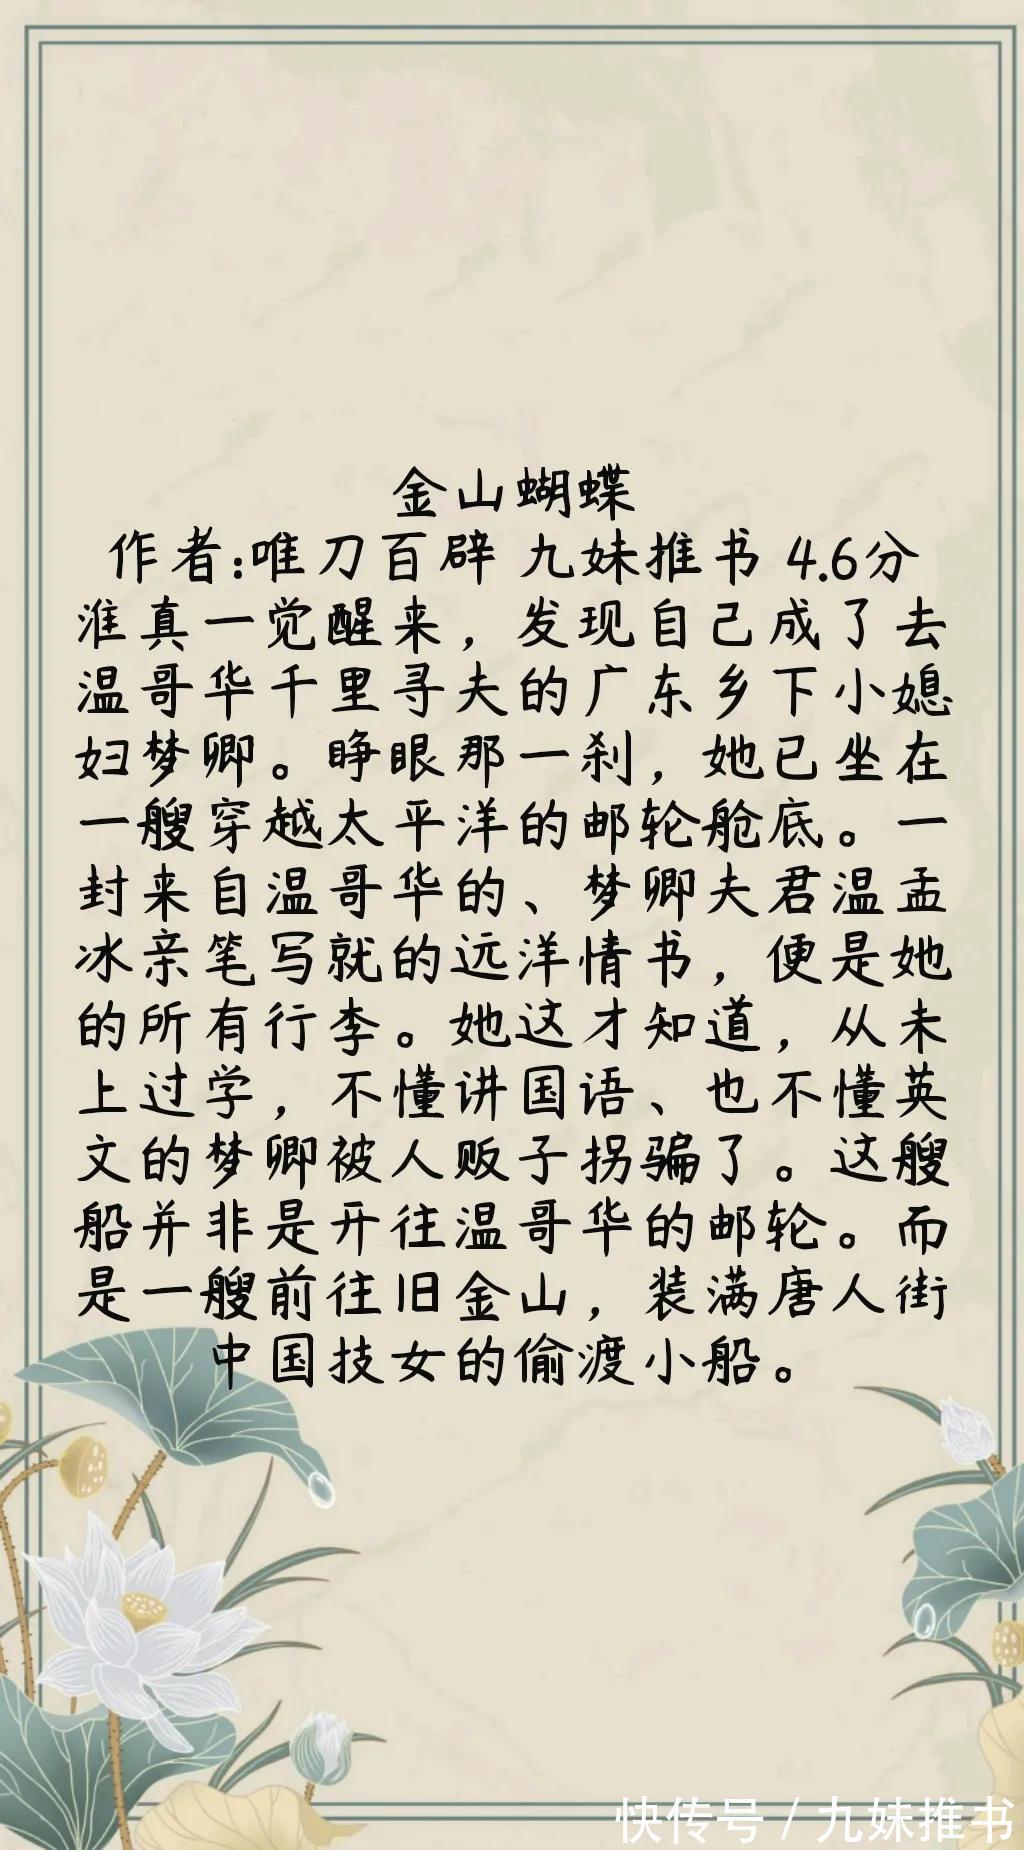 金山蝴蝶
作者:唯刀百辟 九妹推书 4.6分
淮真一觉醒来，发现自己成了去
温哥华千里寻夫的广东乡下小媳
妇梦卿。睁眼那一刹，她已坐在
一艘穿越太平洋的邮轮舱底。一
封来自温哥华的、梦卿夫君温孟
冰亲笔写就的远洋情书，便是她
的所有行李。她这才知道，从未
上过学，不懂讲国语、也不懂英
文的梦卿被人贩子拐骗了。这艘
船并非是开往温哥华的邮轮。而
是一艘前往旧金山，装满唐人街
中国技女的偷渡小船。
快传号 / 九妹推书